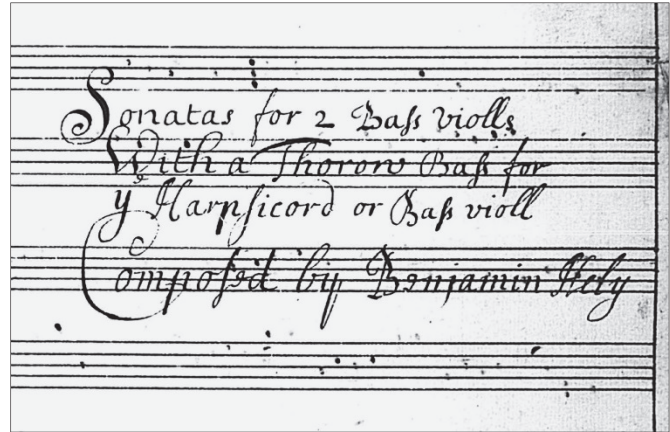 Sonatas for 2 Bass violls
With a Thorow Bass for
yͤ Harpsicord or Bass violl
Composed by Benjamin Hely